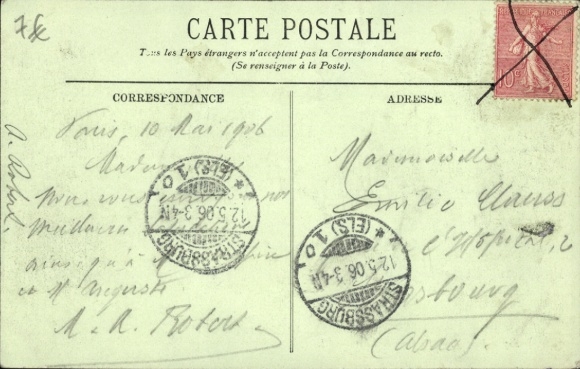 7 fc
CARTE POSTALE
Tous les Pays étrangers n'acceptent pas la Correspondance au recto.
(Se renseigner à la Poste).
10c
CORRESPONDANCE
ADRESSE
Paris, 10 Mai 1906
Madame
Nous vous nos
meilleurs
ainsi qu'à
et Mr Auguste
M. A. Robert
A. Robert
Mademoiselle
Emilie Clauss
l'Hôpital, 2
sbourg
(Alsace)
STRASSBURG
* (ELS) 1 o 1
12.5.06. 3-4N
STRASSBURG
* (ELS) 1 o 1
12.5.06. 3-4N